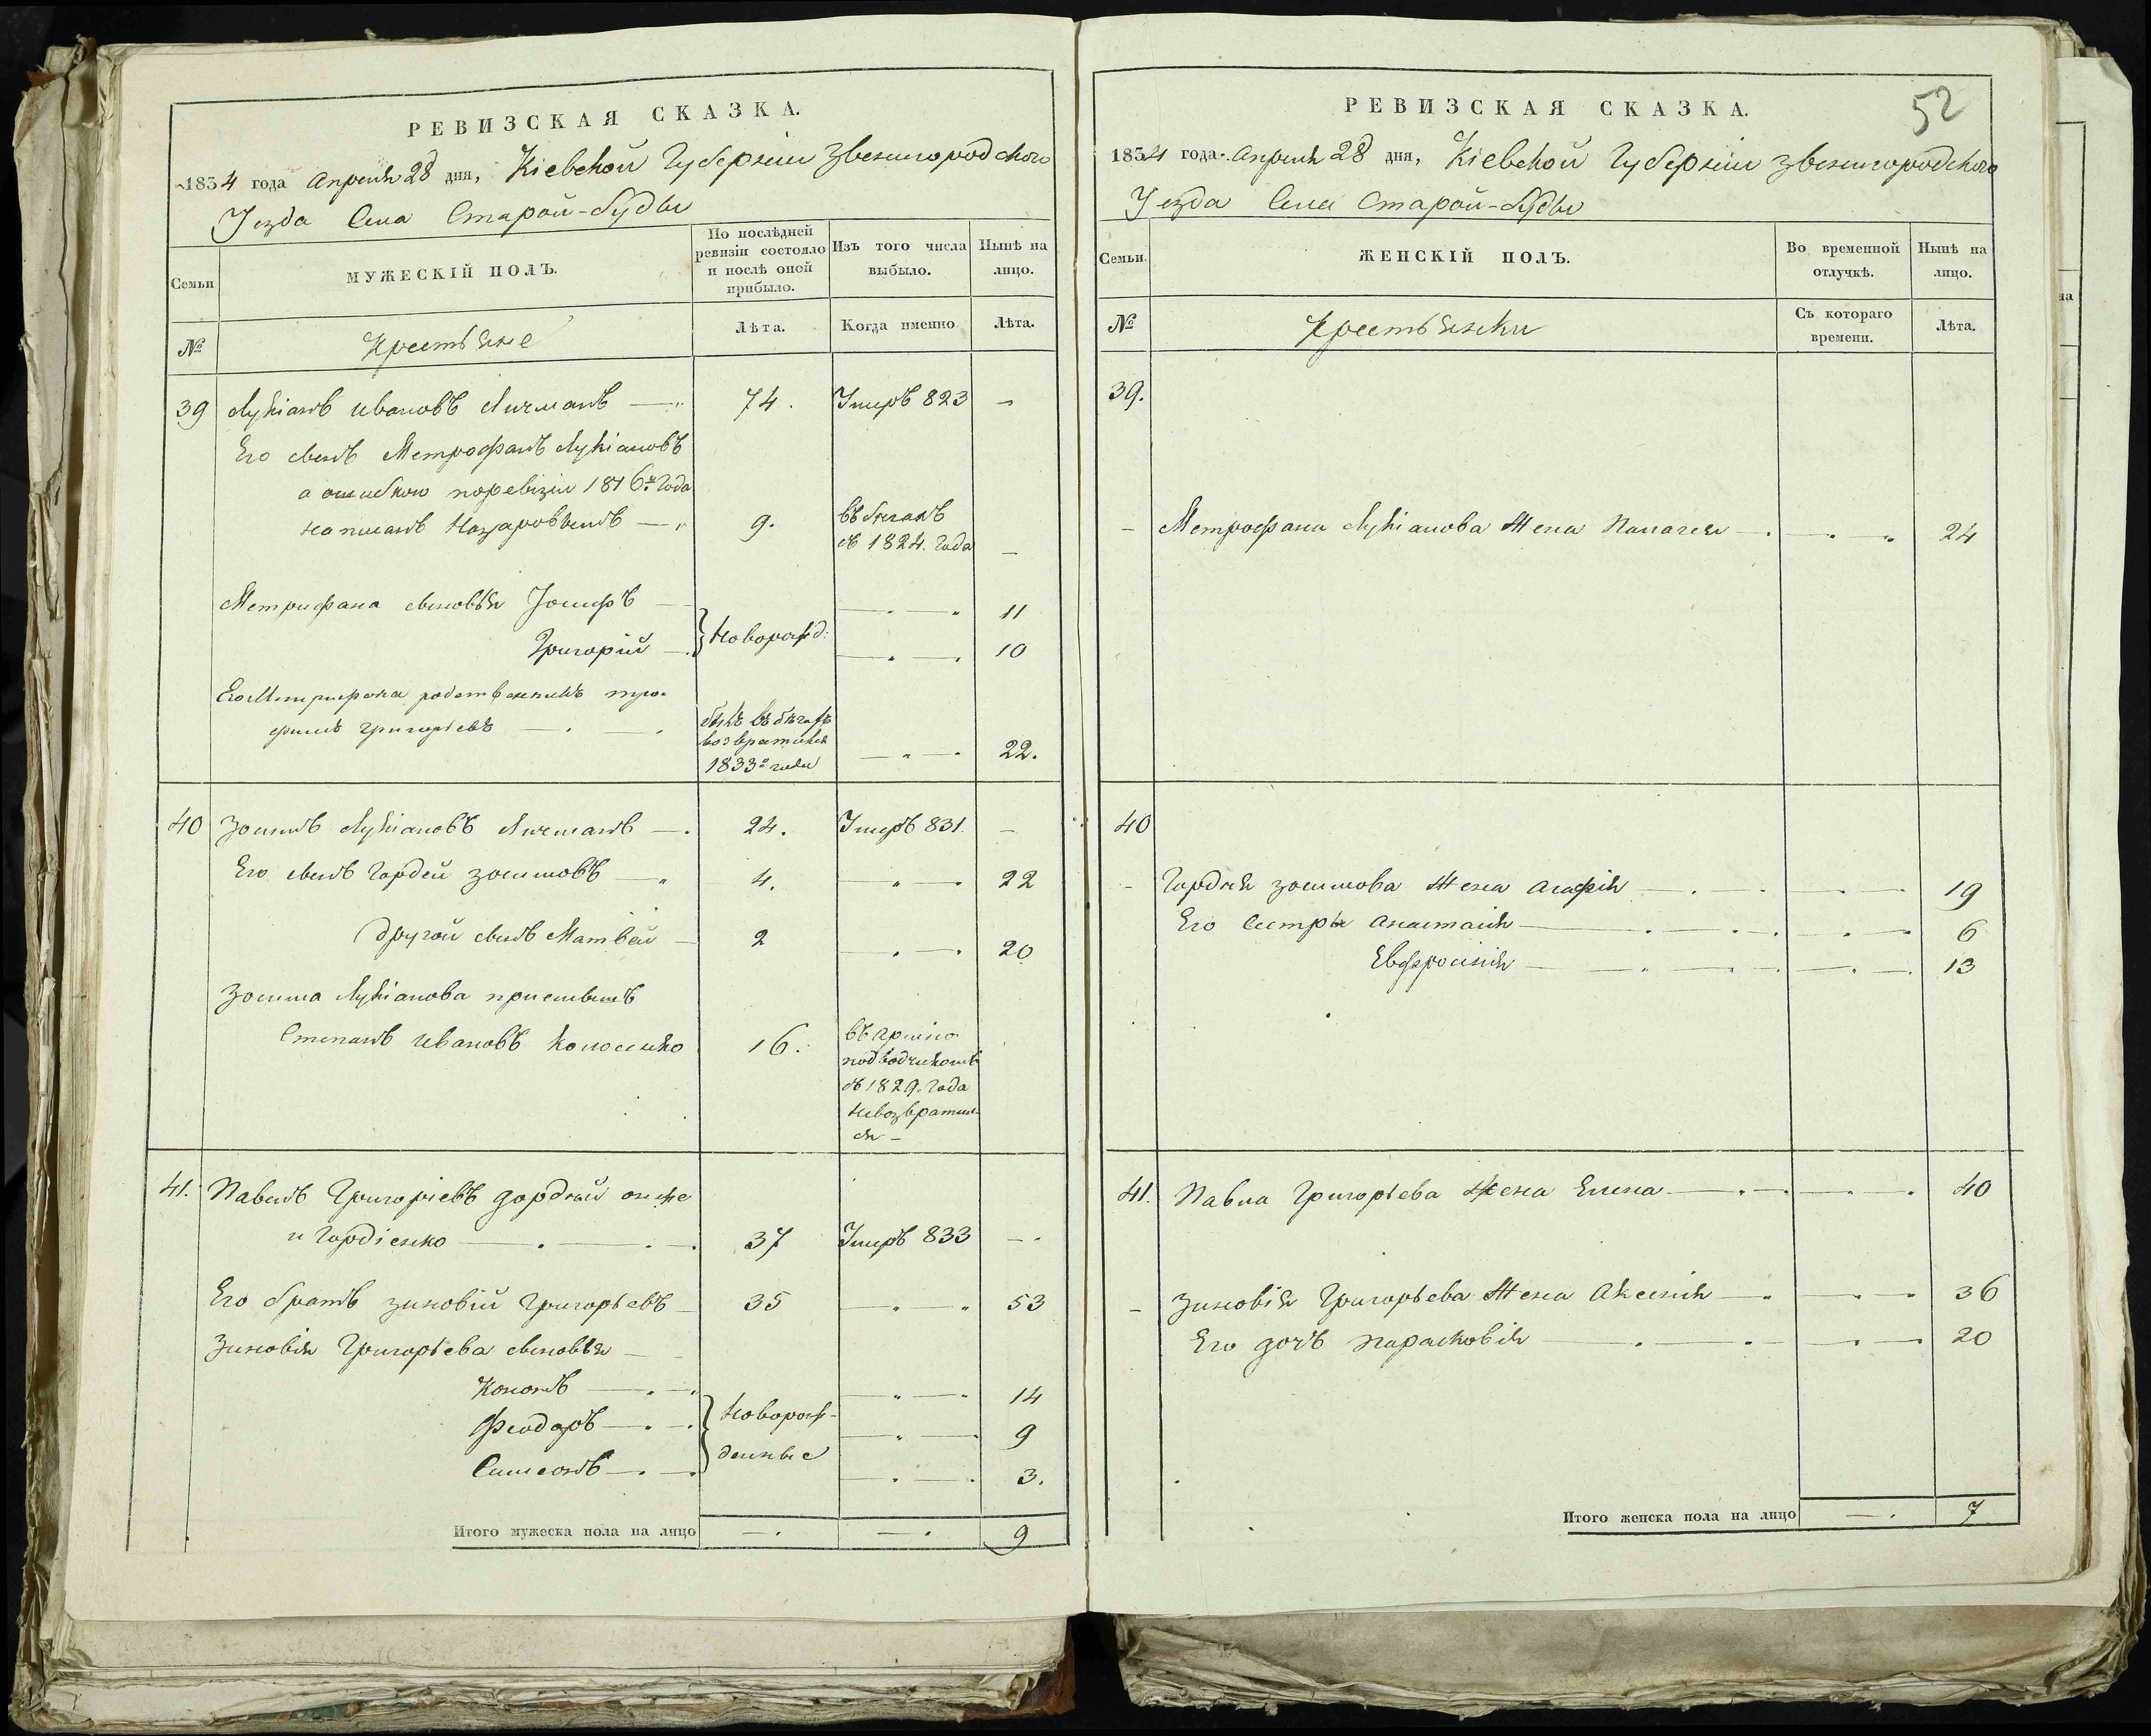 РЕВИЗСКАЯ СКАЗКА.
1834 года Апреля 28 дня, Кіевской Губерніи Звенигородского
Уезда Села Старой-Буды
Семьи
МУЖЕСКІЙ ПОЛЪ.
По послѣдней ревизіи состояло и послѣ оной прибыло.
Изъ того числа выбыло.
Нынѣ на лицо.
№
Крестьяне
Лѣта.
Когда именно
Лѣта.
39 Лукіанъ Ивановъ Личманъ — 74. Умеръ 823 —
Его сынъ Метрофанъ Лукіановъ
а ошибкою поревізіи 1816го Года
написанъ Назаровымъ — 9. въ бегахъ
съ 1824. Года —
Метрофана сыновья Іосифъ — 11
Григорій — Новорожд: 10
Его Митрофана родственникъ тро-
фимъ Григорьевъ — былъ въ бѣгахъ
возвратился
1833го года 22.
40 Зосимъ Лукіановъ Личманъ — 24. Умеръ 831. —
Его сынъ Гордей Зосимовъ — 4. 22
Другой сынъ Матвей — 2 20
Зосима Лукіанова приемышъ
Степанъ Ивановъ 16.
съ 1829. Года
невозвратил-
ся —
41. Павелъ Григоріевъ Гордый онже
и Гордіенко — 37 Умеръ 833 —
Его братъ Зиновій Григорьевъ — 35 53
Зиновія Григорьева сыновья —
Кононъ — 14
Феодоръ — Новорож- 9
Симеонъ — денные 3.
Итого мужеска пола на лицо — — 9
52
РЕВИЗСКАЯ СКАЗКА.
1834 года Апреля 28 дня, Кіевской Губерніи Звенигородского
Уезда Села Старой-Буды
Семьи.
ЖЕНСКІЙ ПОЛЪ.
Во временной отлучкѣ.
Нынѣ на лицо.
№
Крестьянки
Съ котораго времени.
Лѣта.
39.
— Метрофана Лукіанова Жена Палагея — 24
40
— Гордея Зосимова Жена Агафія — 19
Его Сестры Анастасія — 6
Евфросинія — 13
41. Павла Григорьева Жена Елена — 40
— Зиновія Григорьева Жена Аксенія — 36
Его дочь Парасковія — 20
Итого женска пола на лицо — 7